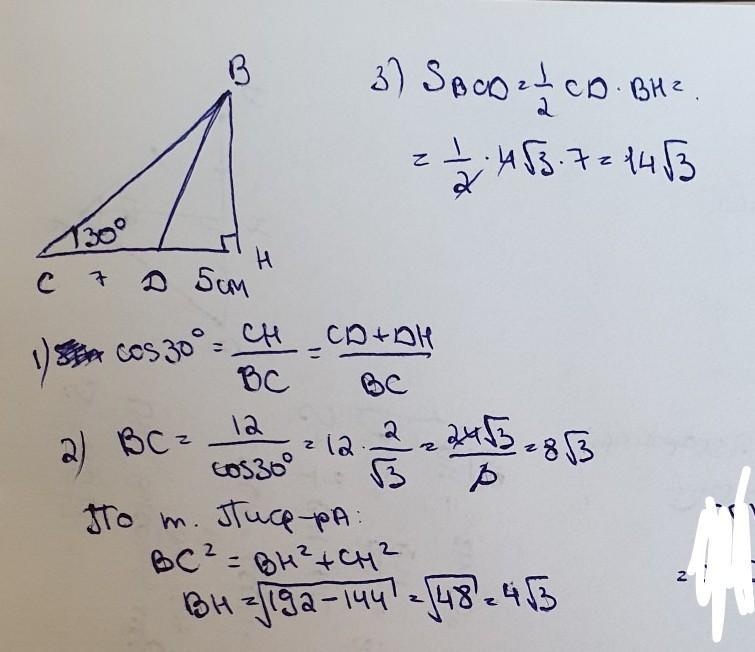 B
30°
C 7 D 5см H
3) S BCD = 1/2 CD · BH =
= 1/2 · 4√3 · 7 = 14√3
1) cos30° = CH/BC = CD+DH/BC
2) BC = 12/cos30° = 12 · 2/√3 = 24√3/3 = 8√3
По т. Пиф-рА:
BC² = BH² + CH²
BH = √192-144 = √48 = 4√3
=